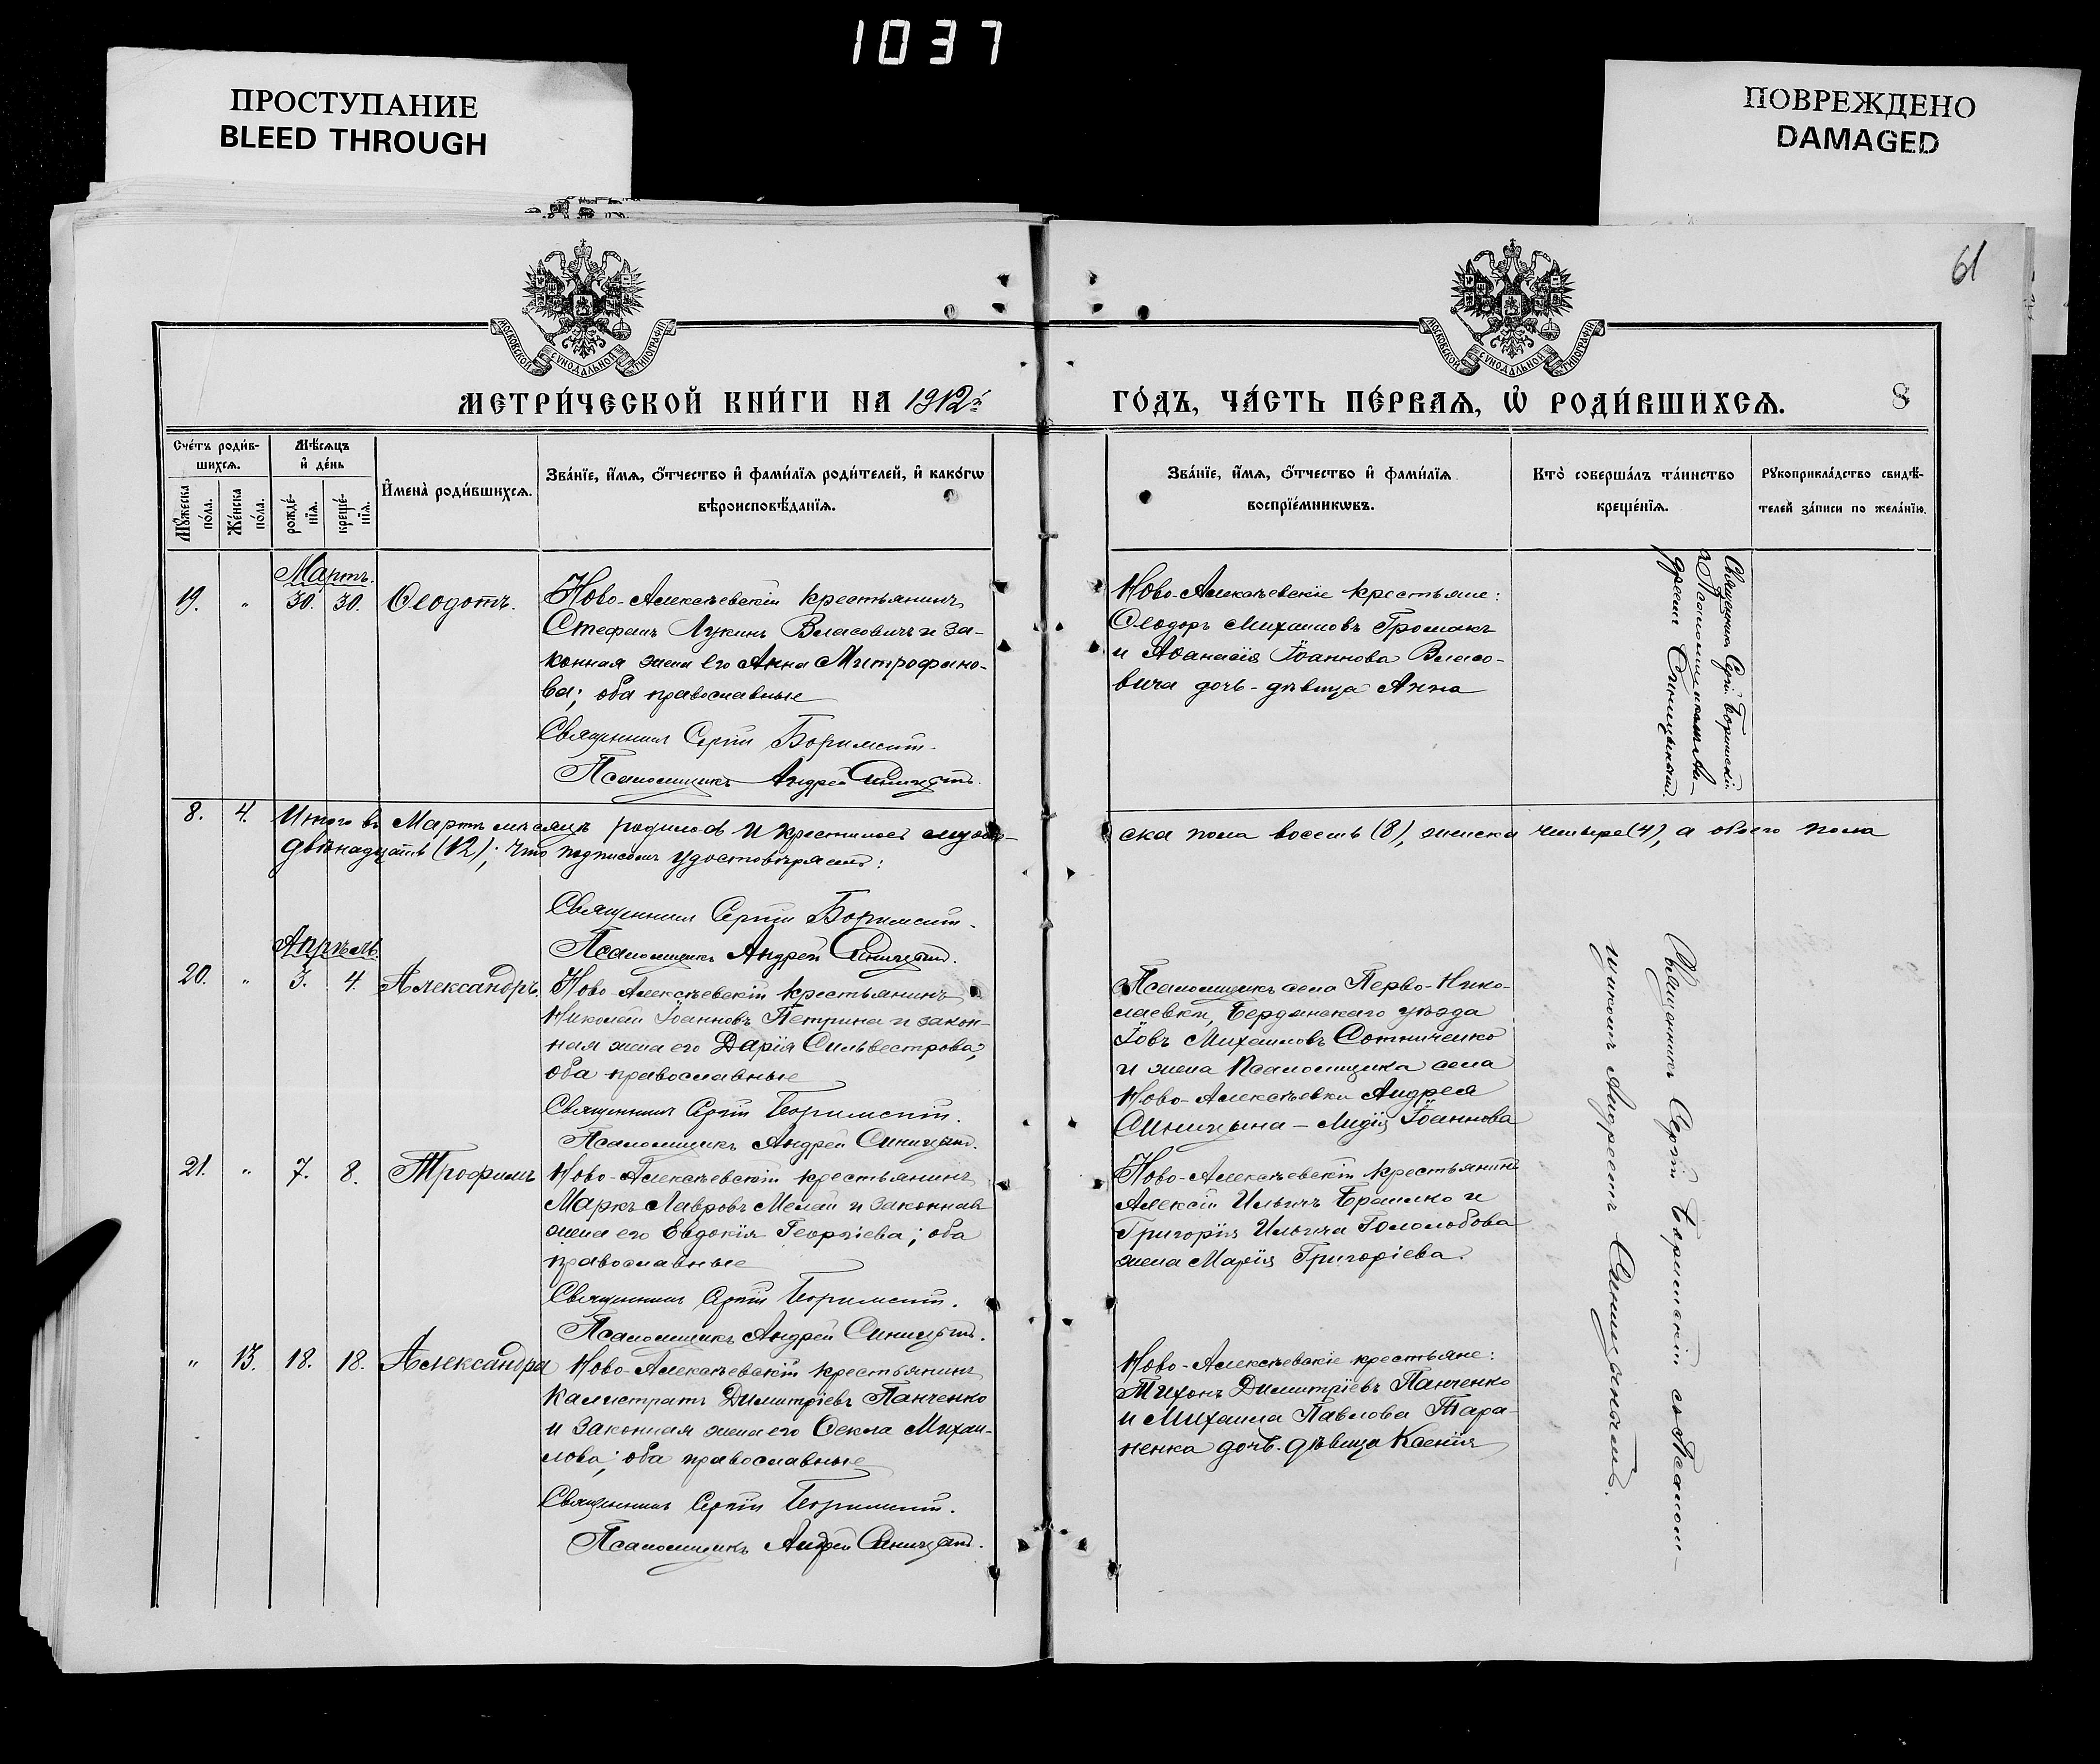 1037
ПРОСТУПАНИЕ
BLEED THROUGH
ПОВРЕЖДЕНО
DAMAGED
61
МОСКОВСКОЙ СУНОДАЛЬНОЙ ТИПОГРАФІИ
МОСКОВСКОЙ СУНОДАЛЬНОЙ ТИПОГРАФІИ
МЕТРИ́ЧЕСКОЙ КНИ́ГИ НА 1912й
ГО́ДЪ, ЧА́СТЬ ПЕ́РВАЯ, Ѡ РОДИ́ВШИХСЯ.
8
Сче́тъ роди́в-
шихся.
Му́жеска
по́ла.
Же́нска
по́ла.
Мѣ́сяцъ
и де́нь
рожде́-
нїя.
креще́-
нїя.
И́мена̀ роди́вшихся.
Зва́нїе, и́мя, о́тчество и фами́лїя роди́телей, и како́гѡ
вѣроисповѣ́данїя.
Зва́нїе, и́мя, о́тчество и фами́лїя
воспрїе́мникѡвъ.
Кто̀ соверша́лъ та́инство
креще́нїя.
Рꙋкоприкла́дство свидѣ́-
телей за́писи по жела́нїю.
Мартъ.
19. " 30. 30. Ѳеодотъ.
Ново-Алексѣевскій крестьянинъ
Стефанъ Лукинъ Власовичъ и за-
конная жена его Анна Митрофано-
ва; оба православные
Священникъ Сергій
Псаломщикъ Андрей Синицынъ.
Ново-Алексѣевскіе крестьяне:
Ѳеодоръ Михаиловъ Громакъ
и Аѳанасія Іоаннова Власо-
вича дочь-дѣвица Анна
Священникъ Сергій
съ Псаломщикомъ Ан-
дреемъ Синицынымъ.
8. 4. Итого въ Мартѣ мѣсяцѣ родилось и крестилось муже-
ска пола восемь (8), женска четыре (4), а обоего пола
двѣнадцать (12); что подписомъ удостовѣряемъ:
Священникъ Сергій
Псаломщикъ Андрей Синицынъ.
Апрѣль.
20. " 3. 4. Александръ.
Ново-Алексѣевскій крестьянинъ
Николай Іоанновъ Петрина и закон-
ная жена его Дарія Сильвестрова,
оба православные
Священникъ Сергій
Псаломщикъ Андрей Синицынъ.
Псаломщикъ села Перво-Нико-
лаевки, Бердянскаго уѣзда
Іовъ Михаиловъ Сотниченко
и жена Псаломщика села
Ново-Алексѣевки Андрея
Синицына - Лидія Іоаннова
21. " 7. 8. Трофимъ
Ново-Алексѣевскій крестьянинъ
Маркъ Лавровъ Мелай и законная
жена его Евдокія Георгіева; оба
православные
Священникъ Сергій
Псаломщикъ Андрей Синицынъ.
Ново-Алексѣевскій крестьянинъ
Алексій Ильинъ и
Григорія Ильича Гололобова
жена Марія Григоріева.
" 13. 18. 18. Александра
Ново-Алексѣевскій крестьянинъ
Калистратъ Димитріевъ Панченко
и законная жена его Ѳекла Михаи-
лова; оба православные
Священникъ Сергій
Псаломщикъ Андрей Синицынъ.
Ново-Алексѣевскіе крестьяне:
Тихонъ Димитріевъ Панченко
и Михаила Павлова Тара-
ненка дочь-дѣвица Ксенія
Священникъ Сергій съ Псалом-
щикомъ Андреемъ Синицынымъ.